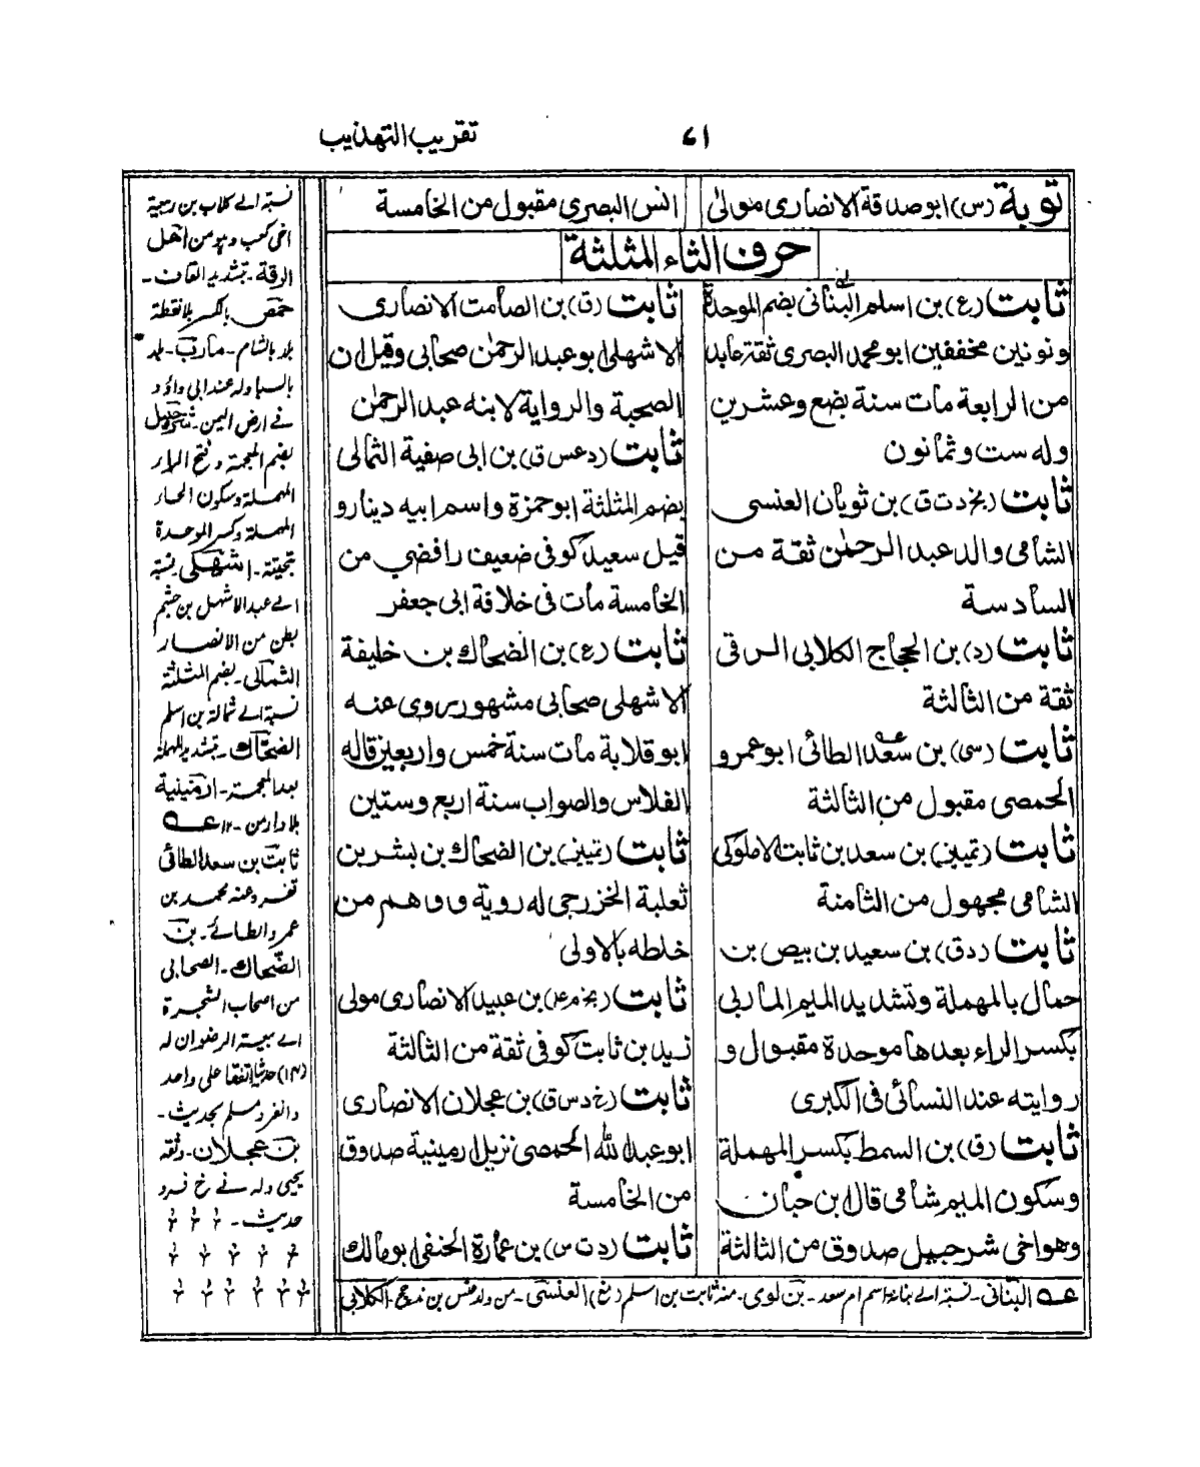 تقريب التهذيب
٧١
توبة (س) ابو صدقة الانصارى مولى
انس البصرى مقبول من الخامسة
حرف الثاء المثلثة
ثابت (ع) بن اسلم البنانى بضم الموحدة
ونونين مخففين ابو محمد البصرى ثقة عابد
من الرابعة مات سنة بضع وعشرين
وله ست وثمانون
ثابت (بخ دت ق) بن ثوبان العنسى
الشامى والد عبد الرحمٰن ثقة من
السادسة
ثابت (د) بن الحجاج الكلابى الرقى
ثقة من الثالثة
ثابت (سى) بن سعد الطائى ابو عمرو
الحمصى مقبول من الثالثة
ثابت (تمييز) بن سعد بن ثابت الاملوكى
الشامى مجهول من الثامنة
ثابت (دق) بن سعيد بن بيض بن
حمال بالمهملة وتشديد الميم الماربى
بكسر الراء بعدها موحدة مقبول و
روايته عند النسائى فى الكبرى
ثابت (ق) بن السمط بكسر المهملة
وسكون الميم شامى قال ابن حبان
وهو اخى شرجبيل صدوق من الثالثة
ثابت (ق) بن الصامت الانصارى
الاشهلى ابو عبد الرحمٰن صحابى وقيل ان
الصحبة والرواية لابنه عبد الرحمٰن
ثابت (دعس ق) بن ابى صفية الثمالى
بضم المثلثة ابو حمزة واسم ابيه دينار و
قيل سعيد كوفى ضعيف رافضي من
الخامسة مات فى خلافة ابى جعفر
ثابت (ع) بن الضحاك بن خليفة
الاشهلى صحابى مشهور روى عنه
ابو قلابة مات سنة خمس واربعين قاله
الفلاس والصواب سنة اربع وستين
ثابت (تمييز) بن الضحاك بن بشر بن
ثعلبة الخزرجى له روية ووهم من
خلطه بالاولى
ثابت (بخ م عه) بن عبيد الانصارى مولى
زيد بن ثابت كوفى ثقة من الثالثة
ثابت (خ د س ق) بن عجلان الانصارى
ابو عبد الله الحمصى نزيل ارمينية صدوق
من الخامسة
ثابت (د ت س) بن عمارة الحنفى ابو مالك
عه البنانى - نسبة الے بنانة اسم ام سعد - بن لوى - منه ثابت بن اسلم (مغ) العنسى - من ولد عنس بن مذحج - الكلابى
نسبة الے كلاب بن ربيعة
اخى كعب وهو من اهل
الرقة - بتشديد القاف -
حمص بالكسر بلا نقطة
بلد بالشام - مارب - بلد
بالسبا وله عند ابى داؤد
فے ارض اليمن - شرحبيل
بضم المعجمة وفتح الراء
المهملة وسكون الحاء
المهملة وكسر الموحدة
تحتية - اشهلى نسبة
الے عبد الاشهل بن جشم
بطن من الانصار
الثمالى - بضم المثلثة
نسبة الے ثمالة بن اسلم
الضحاك - بتشديد المهملة
بعد المعجمة - ارمينية
بلاد ارمن - ١٢ عه
ثابت بن سعد الطائى
تفرد عنه محمد بن
عمرو الطائے - بن
الضحاك - الصحابى
من اصحاب الشجرة
اے بيعة الرضوان له
(١٤) حديثا اتفقا على واحد
وانفرد مسلم بحديث -
بن عجلان - وثقه
يحيى وله فے خ فرد
حديث -